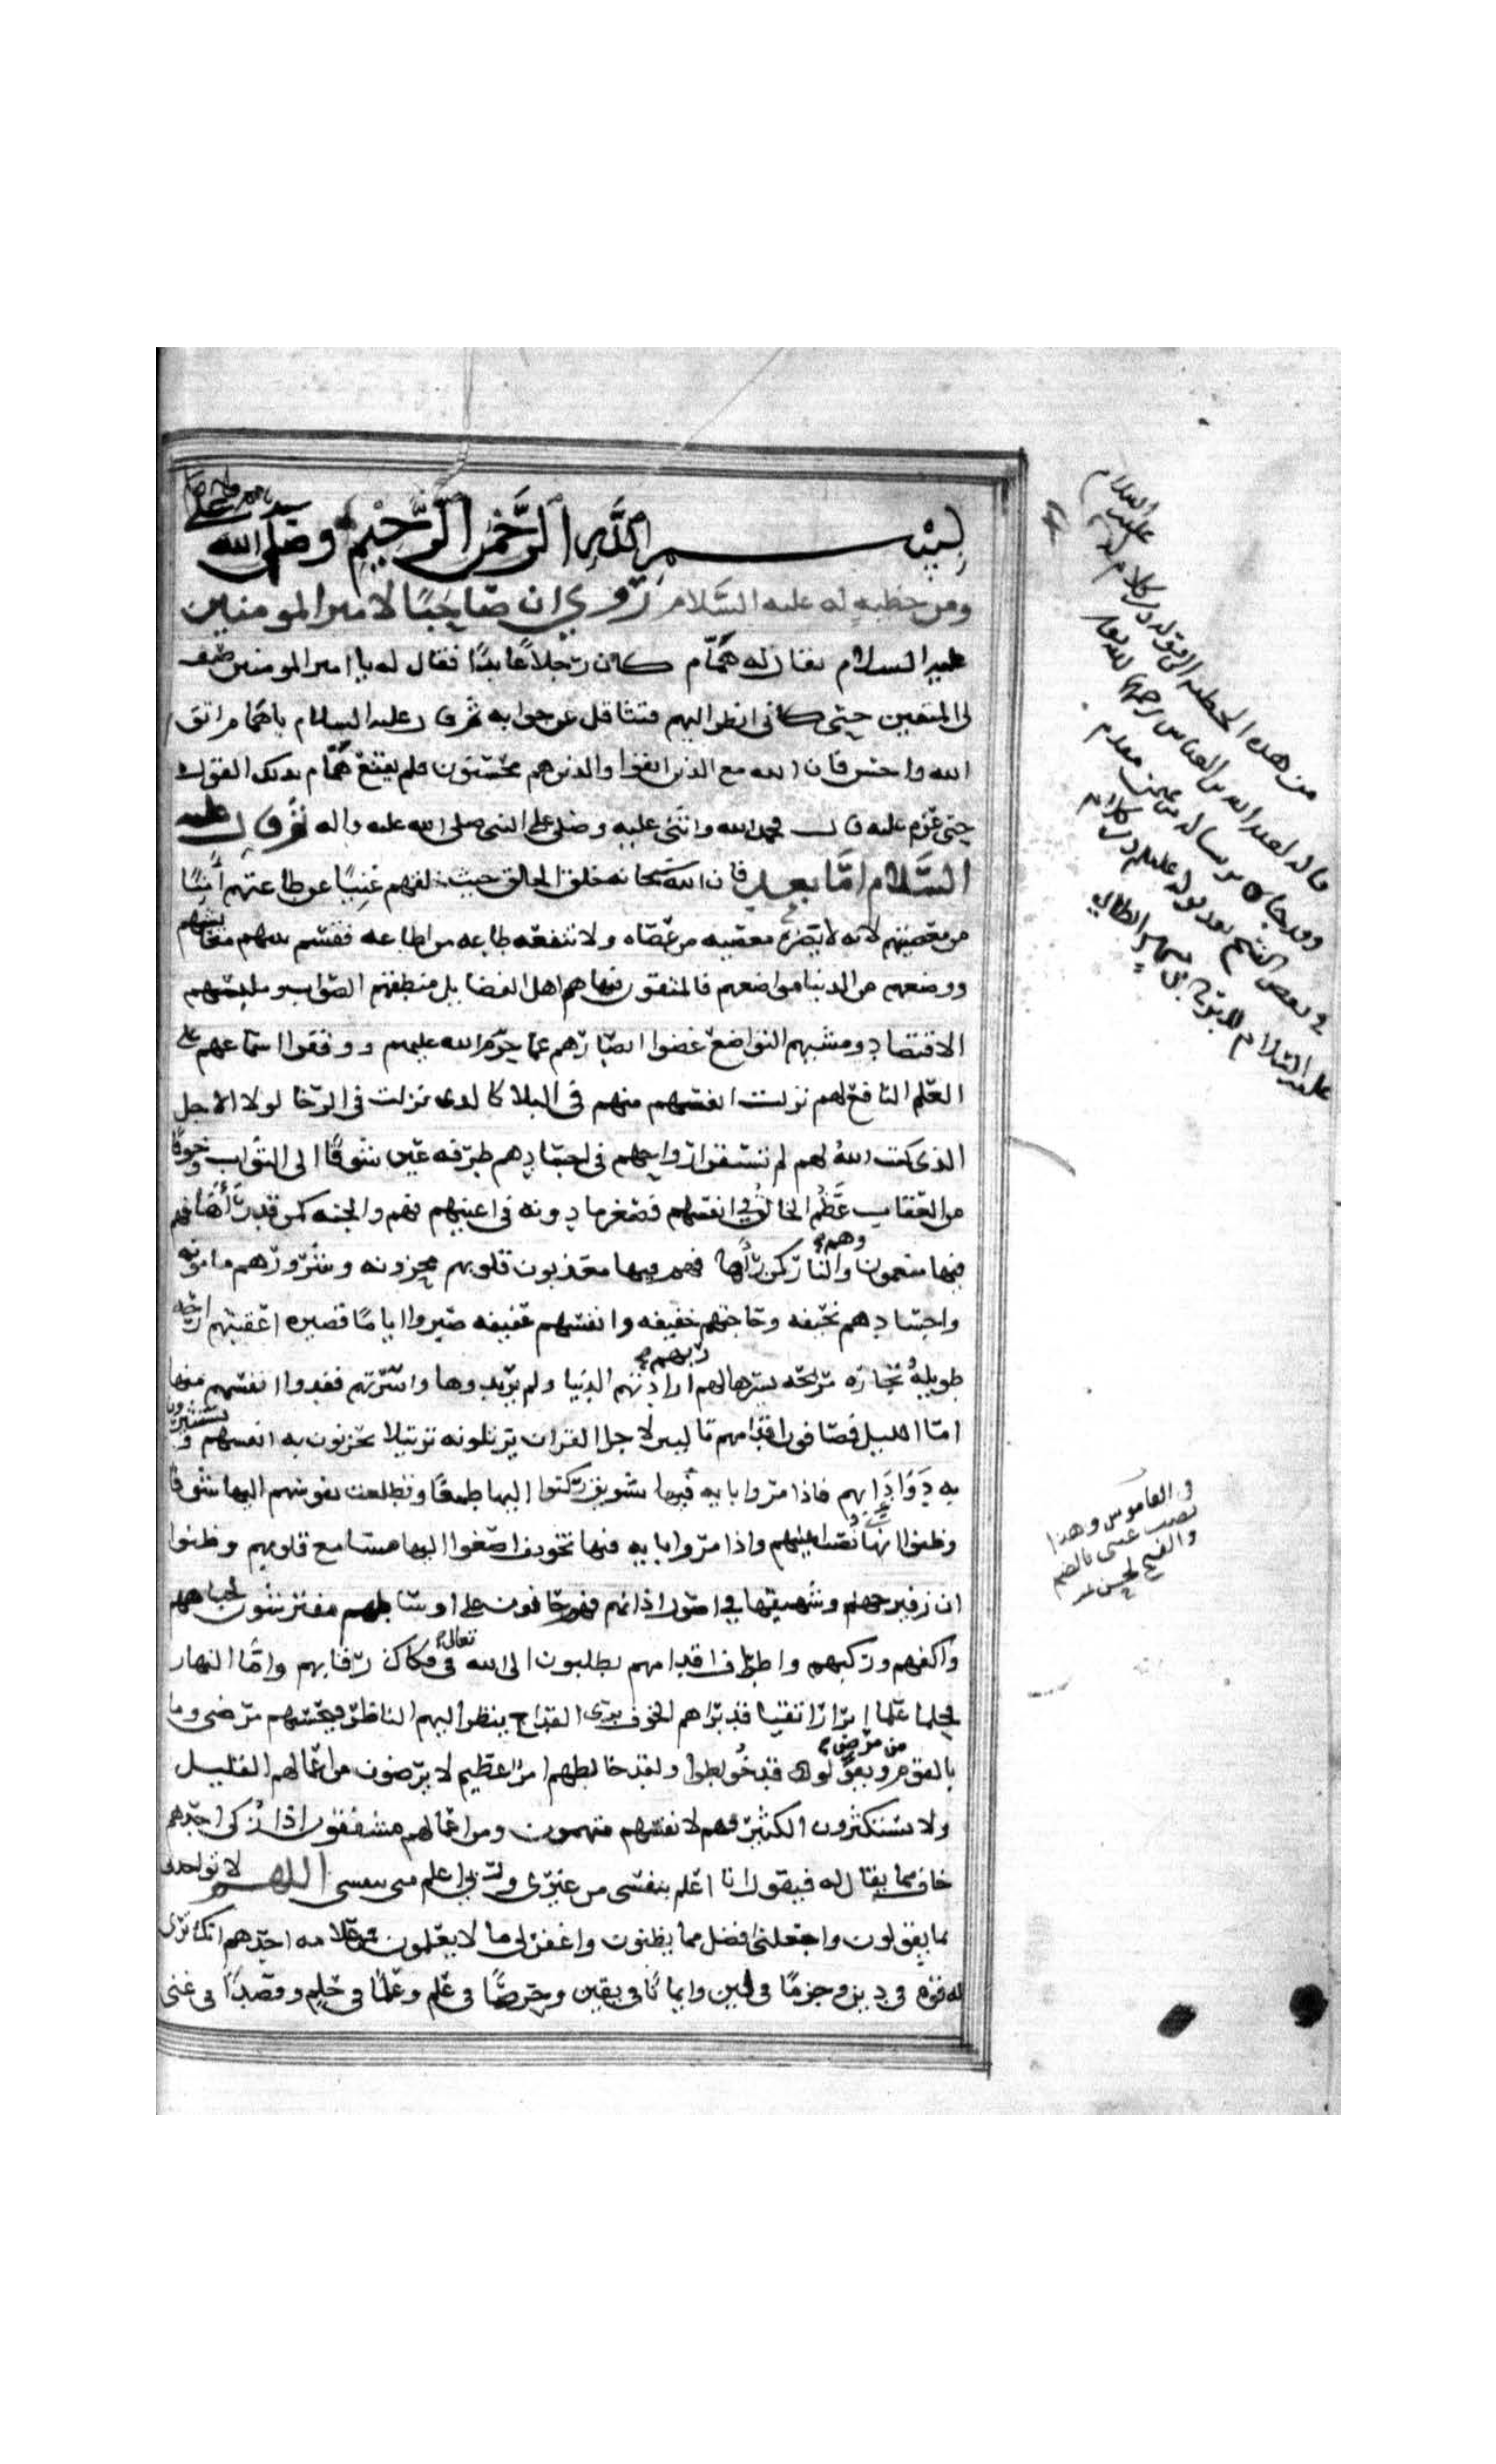 بسم الله الرحمن الرحيم وصلى الله على
ومن خطبة له عليه السلام روي ان صاحبًا لامير المومنين
عليه السلام يقال له همّام كان رجلاً عابدًا فقال له يا امير المومنين صف
لى المتقين حتى كانى انظر اليهم فتثاقل عن جوابه ثم قال عليه السلام يا همام اتق
الله واحسن فان الله مع الذين اتقوا والذين هم محسنون فلم يقنع همّام بذلك القول
حتى عزم عليه قال فحمد الله واثنى عليه وصلى على النبى صلى الله عليه واله ثم قال عليه
السلام امّا بعد فان الله سبحانه خلق الخلق حيث خلقهم غنيًا عن طاعتهم امنًا
من معصيتهم لانه لا يضره معصية من عصاه ولا تنفعه طاعه من اطاعه فقسم بينهم معايشهم
ووضعهم من الدنيا مواضعهم فالمتقون فيها هم اهل الفضايل منطقهم الصواب وملبسهم
الاقتصاد ومشيهم التواضع غضوا ابصارهم عما حرم الله عليهم ووقفوا اسماعهم على
العلم النافع لهم نزلت انفسهم منهم فى البلا كالذى نزلت فى الرخا لولا الاجل
الذى كتب الله لهم لم تستقر ارواحهم فى اجسادهم طرفه عين شوقًا الى الثواب وخوفًا
من العقاب عظم الخالق في انفسهم فصغر ما دونه فى اعينهم فهم والجنه كمن قد رأها فهم
فيها منعمون وهم والنار كمن رأها فهم فيها معذبون قلوبهم محزونه وشرورهم مامونه
واجسادهم نحيفه وحاجتهم خفيفه وانفسهم عفيفه صبروا ايامًا قصيره اعقبتهم راحه
طويله تجاره مربحه يسرها لهم ربهم ارادتهم الدنيا ولم يريدوها واسرتهم ففدوا انفسهم منها
امّا الليل فصافون اقدامهم تاليين لاجزا القران يرتلونه ترتيلا يحزنون به انفسهم ويستثيرون
به دوا دايهم فاذا مروا بايه فيها تشويق ركنوا اليها طمعًا وتطلعت نفوسهم اليها شوقًا
وظنوا انها نصب اعينهم واذا مروا بايه فيها تخويف اصغوا اليها مسامع قلوبهم وظنوا
ان زفير جهنم وشهيقها في اصول اذانهم فهم حانون على اوساطهم مفترشون لجباههم
واكفهم وركبهم واطراف اقدامهم يطلبون الى الله تعالى فى فكاك رقابهم وامّا النهار
فحلما علما ابرار اتقيا قد براهم الخوف برى القداح ينظر اليهم الناظر فيحسبهم مرضى وما
بالقوم من مرض ويقول قد خولطوا ولقد خالطهم امر عظيم لا يرضون من اعمالهم القليل
ولا يستكثرون الكثير فهم لانفسهم متهمون ومن اعمالهم مشفقون اذا زكى احدهم
خاف مما يقال له فيقول انا اعلم بنفسى من غيرى وربي اعلم منى بنفسى اللهم لا تواخذنى
بما يقولون واجعلنى افضل مما يظنون واغفر لى ما لا يعلمون فمن علامه احدهم انك ترى
له قوه فى دين وحزمًا فى لين وايمانًا فى يقين وحرصًا فى علم وعلمًا فى حلم وقصدًا فى غنى
من هذه الخطبه الى قوله
عليه السلام
فى القاموس وهذا
نصب عينى بالضم
والفتح